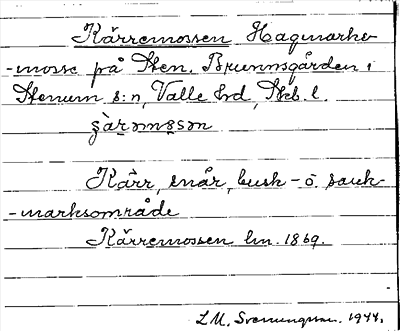 Kärremossen Hagmarks-
-mosse på Sten. Brunnsgården i
Stenum s:n, Valle hd, Skb. l.
Kärr, snår, busk- o. sank-
-marksområde
Kärremossen lm. 1869.
L M. Svenungsson. 1944.